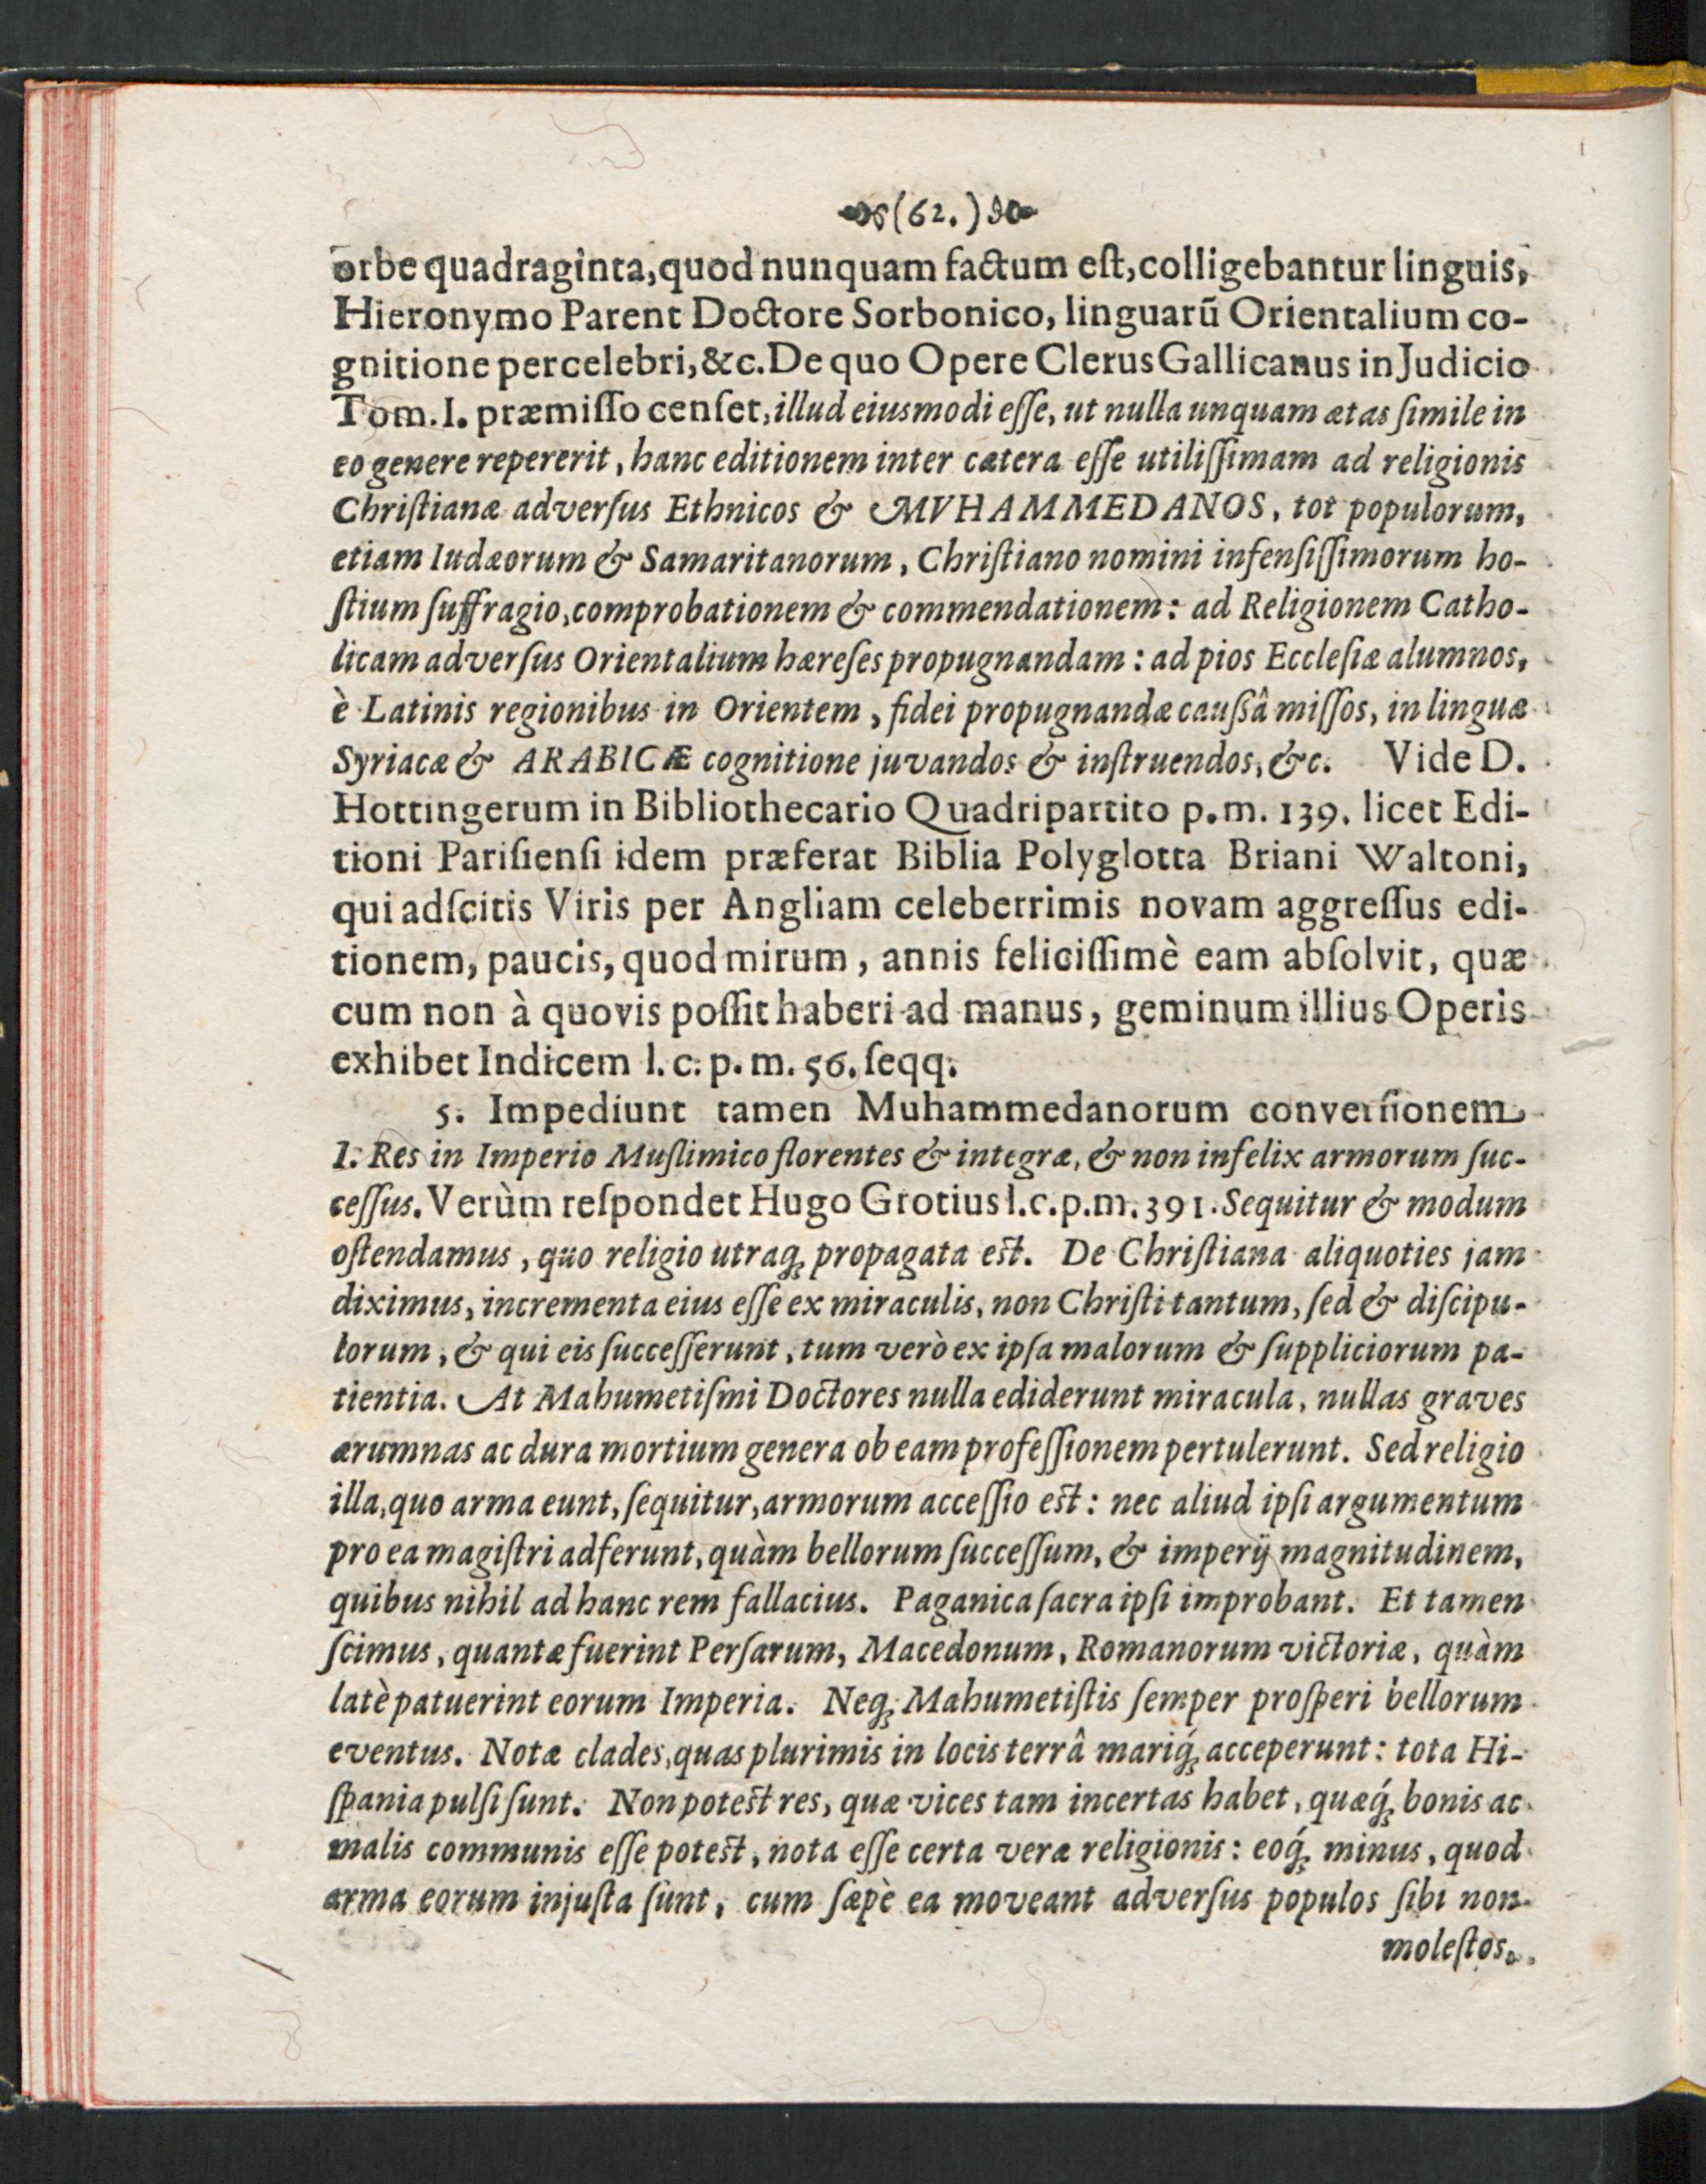 (62.)
orbe quadraginta, quod nunquam factum eſt, colligebantur linguis,
Hieronymo Parent Doctore Sorbonico, linguarū Orientalium co-
gnitione percelebri, &c. De quo Opere Clerus Gallicanus in Judicio
Tom. I. præmiſſo cenſet, illud eiusmodi eſſe, ut nulla unquam ætas ſimile in
eo genere repererit, hanc editionem inter cætera eſſe utiliſſimam ad religionis
Chriſtianæ adverſus Ethnicos & MVHAMMEDANOS, tot populorum,
etiam Iudæorum & Samaritanorum, Chriſtiano nomini infenſiſſimorum ho-
ſtium ſuffragio, comprobationem & commendationem: ad Religionem Catho-
licam adverſus Orientalium hæreſes propugnandam: ad pios Eccleſiæ alumnos,
è Latinis regionibus in Orientem, fidei propugnandæ cauſsâ miſſos, in linguæ
Syriacæ & ARABICÆ cognitione juvandos & inſtruendos, &c. Vide D.
Hottingerum in Bibliothecario Quadripartito p. m. 139. licet Edi-
tioni Pariſienſi idem præferat Biblia Polyglotta Briani Waltoni,
qui adſcitis Viris per Angliam celeberrimis novam aggreſſus edi-
tionem, paucis, quod mirum, annis feliciſſimè eam abſolvit, quæ
cum non à quovis poſſit haberi ad manus, geminum illius Operis
exhibet Indicem l. c. p. m. 56. ſeqq.
5. Impediunt tamen Muhammedanorum converſionem
I. Res in Imperio Muſlimico florentes & integræ, & non infelix armorum ſuc-
ceſſus. Verùm reſpondet Hugo Grotius l. c. p. m. 391. Sequitur & modum
oſtendamus, quo religio utraq; propagata eſt. De Chriſtiana aliquoties jam
diximus, incrementa eius eſſe ex miraculis, non Chriſti tantum, ſed & diſcipu-
lorum, & qui eis ſucceſſerunt, tum verò ex ipſa malorum & ſuppliciorum pa-
tientia. At Mahumetiſmi Doctores nulla ediderunt miracula, nullas graves
ærumnas ac dura mortium genera ob eam profeſſionem pertulerunt. Sed religio
illa, quo arma eunt, ſequitur, armorum acceſſio eſt: nec aliud ipſi argumentum
pro ea magiſtri adferunt, quàm bellorum ſucceſſum, & imperij magnitudinem,
quibus nihil ad hanc rem fallacius. Paganica ſacra ipſi improbant. Et tamen
ſcimus, quantæ fuerint Perſarum, Macedonum, Romanorum victoriæ, quàm
latè patuerint eorum Imperia. Neq; Mahumetiſtis ſemper proſperi bellorum
eventus. Notæ clades, quas plurimis in locis terrâ mariq́; acceperunt: tota Hi-
ſpania pulſi ſunt. Non poteſt res, quæ vices tam incertas habet, quæq́; bonis ac
malis communis eſſe poteſt, nota eſſe certa veræ religionis: eoq́; minus, quod
arma eorum injuſta ſunt, cum ſæpè ea moveant adverſus populos ſibi non
moleſtos.